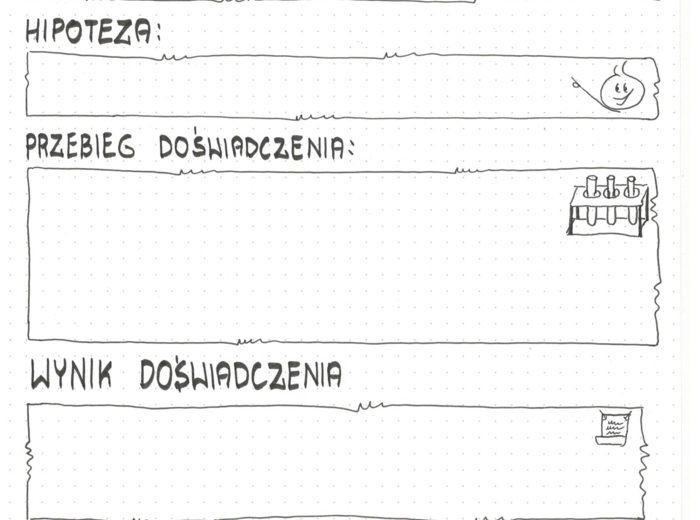 HIPOTEZA:
PRZEBIEG DOŚWIADCZENIA:
WYNIK DOŚWIADCZENIA